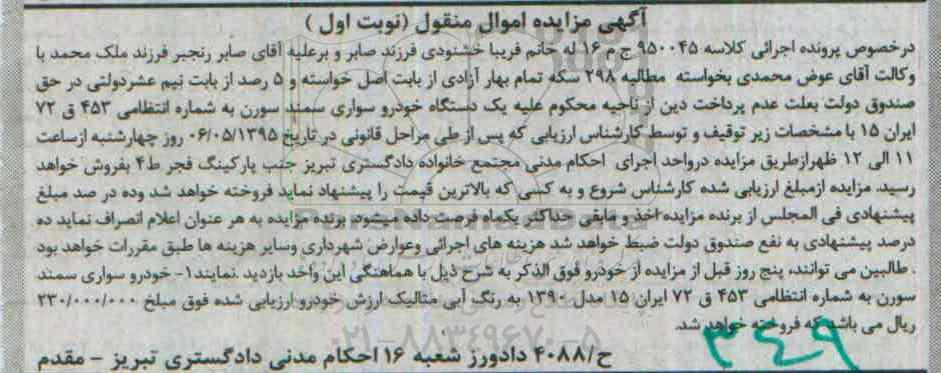 آگهی مزایده اموال منقول (نوبت اول )
درخصوص پرونده اجرائی کلاسه ۹۵۰۰۴۵ ج م ۱۶ له خانم فریبا خشنودی فرزند صابر و برعلیه آقای صابر رنجبر فرزند ملک محمد با
وکالت آقای عوض محمدی بخواسته مطالبه ۲۹۸ سکه تمام بهار آزادی از بابت اصل خواسته و ۵ رصد از بابت نیم عشردولتی در حق
صندوق دولت بعلت عدم پرداخت دین از ناحیه محکوم علیه یک دستگاه خودرو سواری سمند سورن به شماره انتظامی ۴۵۳ ق ۷۲
ایران ۱۵ با مشخصات زیر توقیف و توسط کارشناس ارزیابی که پس از طی مراحل قانونی در تاریخ ۰۶/۰۵/۱۳۹۵ روز چهارشنبه ازساعت
۱۱ الی ۱۲ ظهرازطریق مزایده درواحد اجرای احکام مدنی مجتمع خانواده دادگستری تبریز جنب پارکینگ فجر ط۴ بفروش خواهد
رسید. مزایده ازمبلغ ارزیابی شده کارشناس شروع و به کسی که بالاترین قیمت را پیشنهاد نماید فروخته خواهد شد وده در صد مبلغ
پیشنهادی فی المجلس از برنده مزایده اخذ و مابقی حداکثر یکماه فرصت داده میشود. برنده مزایده به هر عنوان اعلام انصراف نماید ده
درصد پیشنهادی به نفع صندوق دولت ضبط خواهد شد هزینه های اجرائی وعوارض شهرداری وسایر هزینه ها طبق مقررات خواهد بود
. طالبین می توانند، پنج روز قبل از مزایده از خودرو فوق الذکر به شرح ذیل با هماهنگی این واحد بازدید .نمایند۱- خودرو سواری سمند
سورن به شماره انتظامی ۴۵۳ ق ۷۲ ایران ۱۵ مدل ۱۳۹۰ به رنگ آبی متالیک ارزش خودرو ارزیابی شده فوق مبلغ ۲۳۰/۰۰۰/۰۰۰
ریال می باشد که فروخته خواهد شد.
۳۴۹
۰۲۱-۸۸۳۴۹۶۷۰-۵
ح/۴۰۸۸ دادورز شعبه ۱۶ احکام مدنی دادگستری تبریز - مقدم